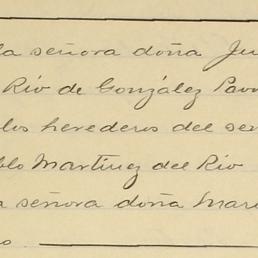 la señora doña Ju
Río de González Pavo
los herederos del se
blo Martínez del Río
a señora doña Mar
o